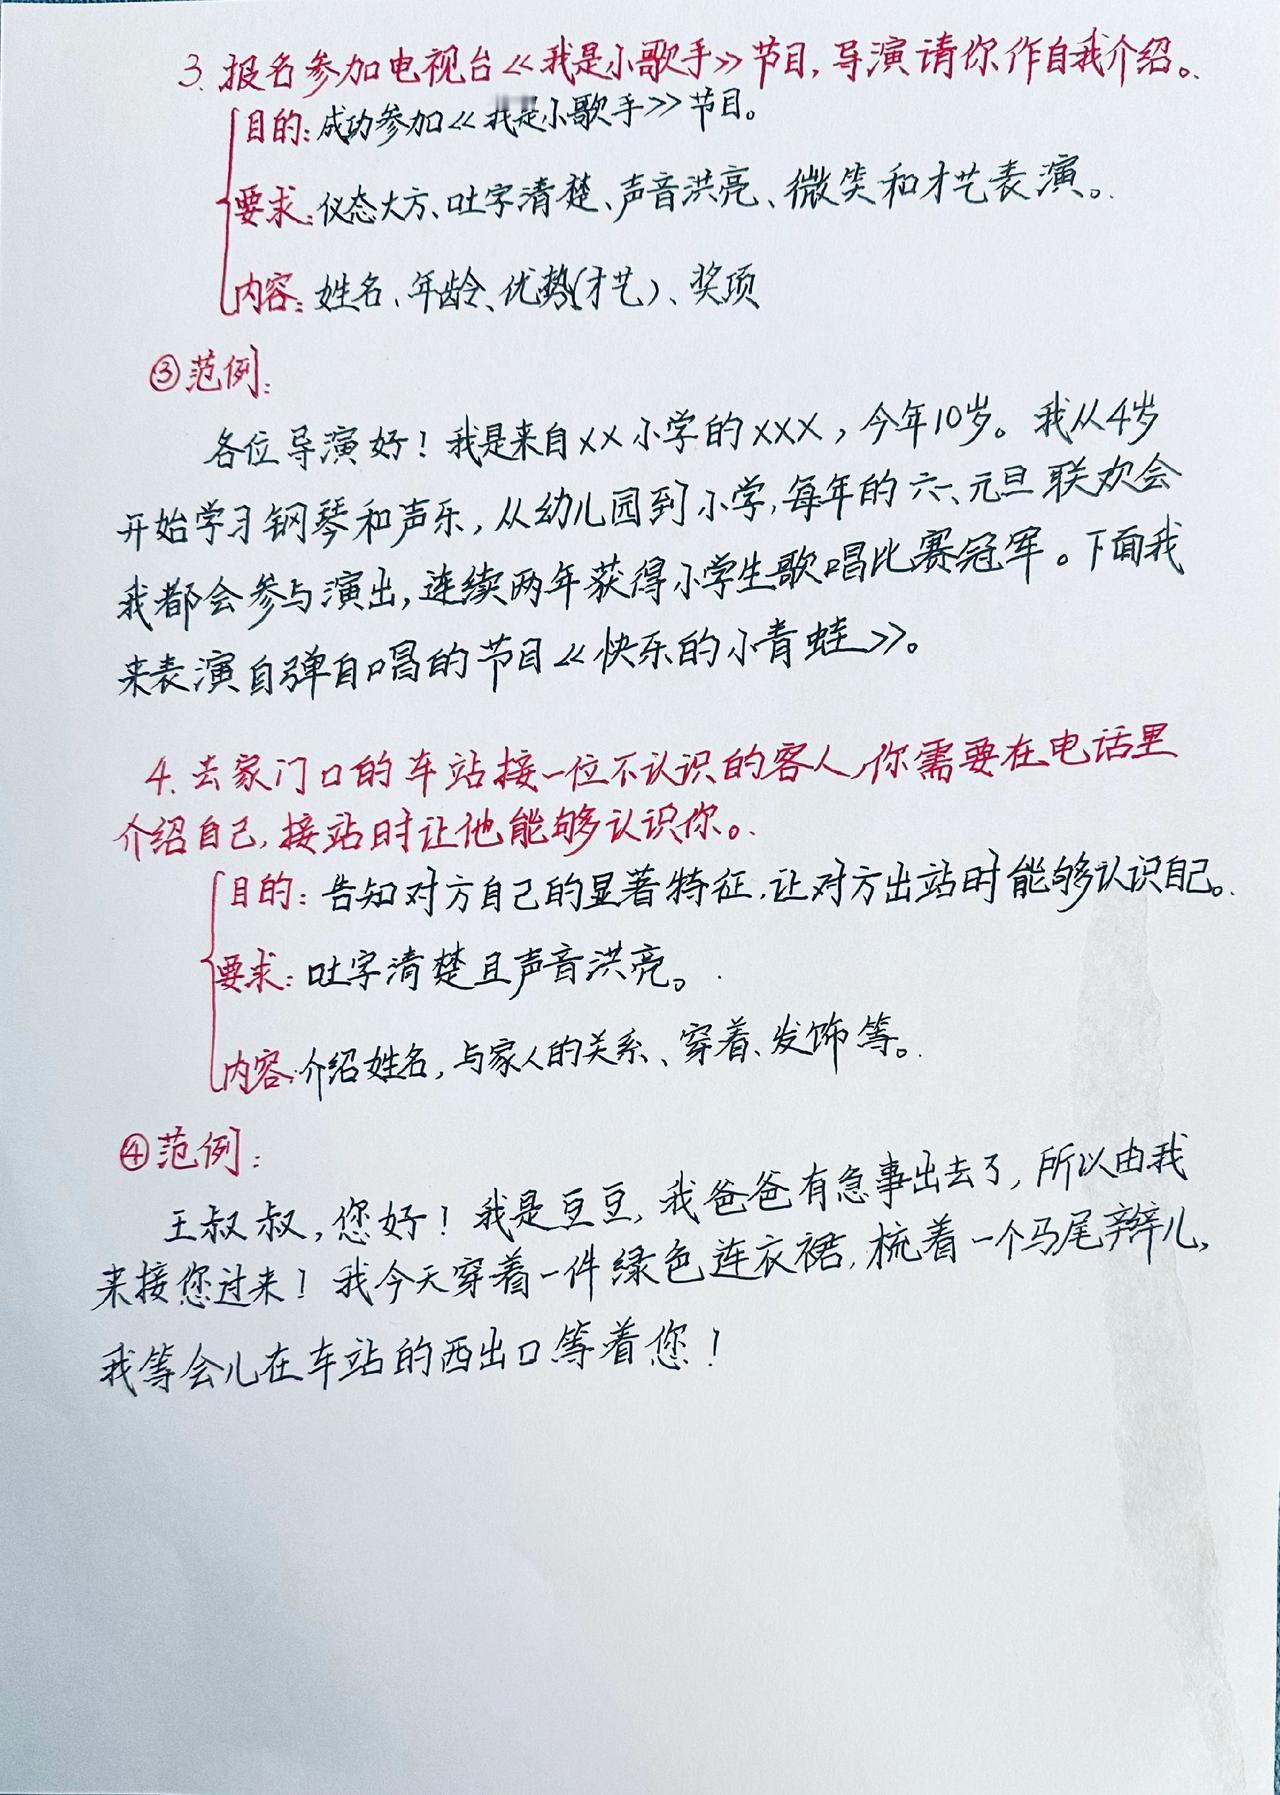 3.报名参加电视台《我是小歌手》节目,导演请你作自我介绍。
目的:成功参加《我是小歌手》节目。
要求:仪态大方、吐字清楚、声音洪亮、微笑和才艺表演。
内容:姓名、年龄、优势(才艺)、奖项
③范例:
各位导演好!我是来自××小学的×××,今年10岁。我从4岁
开始学习钢琴和声乐,从幼儿园到小学,每年的六一、元旦联欢会
我都会参与演出,连续两年获得小学生歌唱比赛冠军。下面我
来表演自弹自唱的节目《快乐的小青蛙》。
4.去家门口的车站接一位不认识的客人,你需要在电话里
介绍自己,接站时让他能够认识你。
目的:告知对方自己的显著特征,让对方出站时能够认识自己。
要求:吐字清楚且声音洪亮。
内容:介绍姓名,与家人的关系、穿着、发饰等。
④范例:
王叔叔,您好!我是豆豆,我爸爸有急事出去了,所以由我
来接您过来!我今天穿着一件绿色连衣裙,梳着一个马尾辫儿,
我等会儿在车站的西出口等着您!